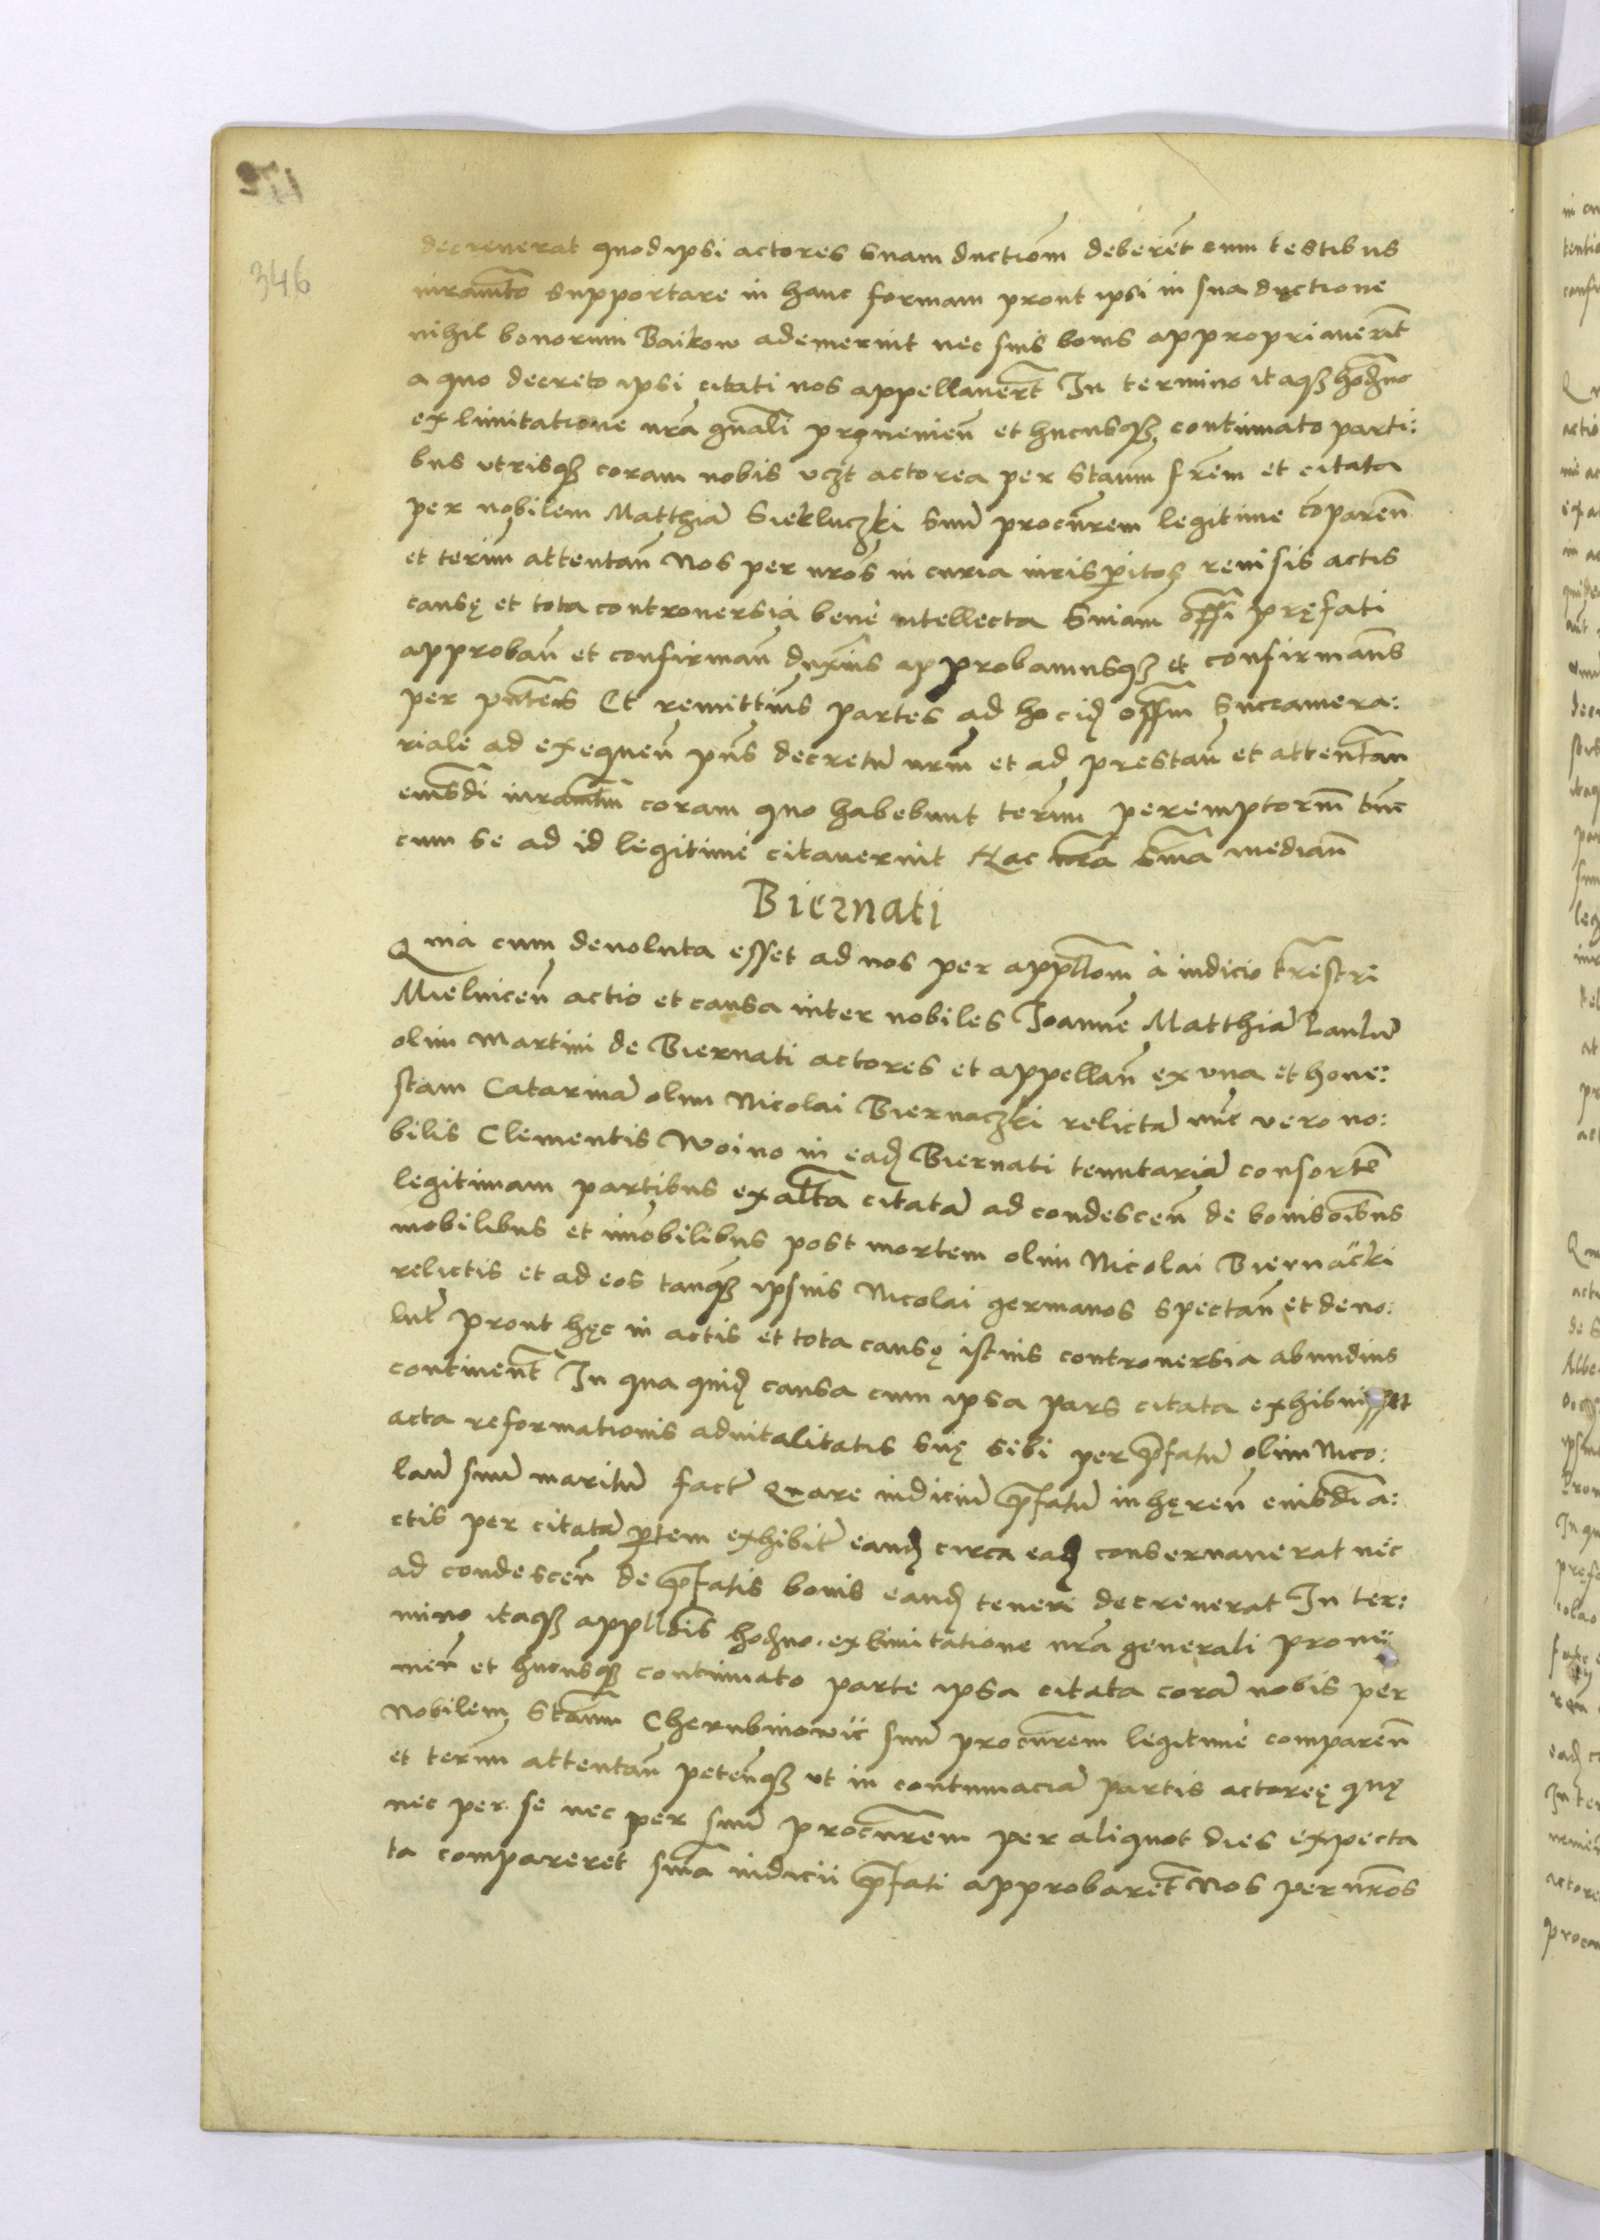 346
decreverat quod ipsi actores suam ductiom̃ deberet̃ cum testibus
iuramt̃o supportare in hanc formam prout ipsi in sua ductione
nihil bonorum Baikow ademerint nec suis bonis appropriaverit̃
a quo decreto ipsi citati nos appellavert̃ In termino itaqꝫ hodierno
ex limitatione nr̃a gn̄ali provenien̄ et hucusqꝫ continuato parti:
bus utrisqꝫ coram nobis vcꝫt actorea per Stanm̄ frem̄ et citata
per nobilem Matthiā Siekluczki suū procur̄rem legitime cōparen̄
et term̄ attentan̄ Nos per nr̄os in curia iurisperitos revisis actis
causę et tota controversia bene intellecta Sn̄iam offī pręfati
approban̄ et confirman̄ duxim̄us approbamusqꝫ et confirmam̄s
per pn̄tes Et remittim̄us partes ad hoc id offm̄ Succamera:
riale ad exequen̄ pn̄s decretū nrm̄ et ad prestan̄ et attentan̄
eiusdi iuramt̄m coram quo habebunt term̄ peremptorm̄ tūc
cum se ad id legitime citaverint Hac nr̄a sn̄ia median̄
Biernati
Quia cum devoluta esset ad nos per appllom̄ à iudicio trestri
Mielnicen̄ actio et causa inter nobiles Joannē Matthiā Paulū
olim Martini de Biernati actores et appellan̄ ex una et hone:
stam Catarinā olim Nicolai Biernaczki relictā nūc vero no:
bilis Clementis Woino in eadꝫ Biernati tenutariā consortē
legitimam partibus ex altā citatā ad condescen̄ de bonis oībus
mobilibus et imobilibus post mortem olim Nicolai Biernacki
relictis et ad eos tanqꝫ ipsius Nicolai germanos spectan̄ et devo:
lut̄ prout hęc in actis et tota causę istius controversia abundius
continent̄ In qua quidꝫ causa cum ipsa pars citata exhibuisset
acta reformationis advitalitatis suę sibi per p̄fatū olim Nico:
laū suū maritū fact̄ Quare iudiciū p̄fatū inhęren̄ eiusdī a:
ctis per citatā p̄tem exhibit̄ eandꝫ circa eadꝫ conservaverat nec
ad condescen̄ de p̄fatis bonis eandꝫ teneri decreverat In ter:
mino itaqꝫ appllōis hodierno ex limitatione nr̄a generali prove
nien̄ et hucusqꝫ continuato parte ipsa citata corā nobis per
Nobilem Stanm̄ Cherubinowic suū procur̄rem legitime comparen̄
et term̄ attentan̄ petenqꝫ ut in contumaciā partis actoreę quę
nec per se nec per suū procur̄rem per aliquot dies expecta
ta compareret sn̄ia iudicii p̄fati approbaret̄ Nos per nr̄os